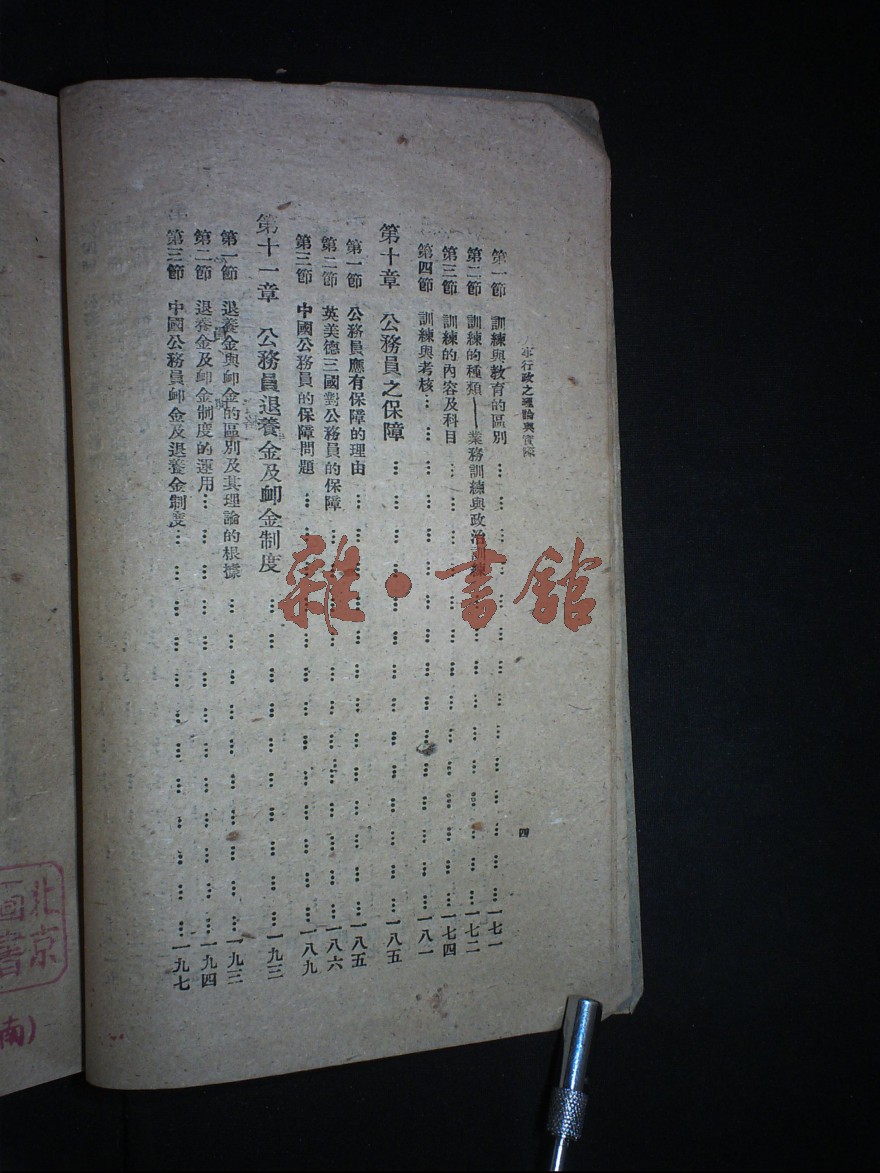 行政之理論與實際
四
第一節 訓練與教育的區別 … … … … … … … … 一七一
第二節 訓練的種類——業務訓練與政治訓練 … … … … … … 一七二
第三節 訓練的內容及科目 … … … … … … … … 一七四
第四節 訓練與考核 … … … … … … … … … 一八一
第十章 公務員之保障 … … … … … … … … 一八五
第一節 公務員應有保障的理由 … … … … … … … … 一八五
第二節 英美德三國對公務員的保障 … … … … … … … 一八六
第三節 中國公務員的保障問題 … … … … … … … … 一八九
第十一章 公務員退養金及卹金制度 … … … … … … 一九三
第一節 退養金與卹金的區別及其理論的根據 … … … … … … 一九三
第二節 退養金及卹金制度的運用 … … … … … … … … 一九四
第三節 中國公務員卹金及退養金制度 … … … … … … … 一九七
雜·書館
北京
圖書
南)